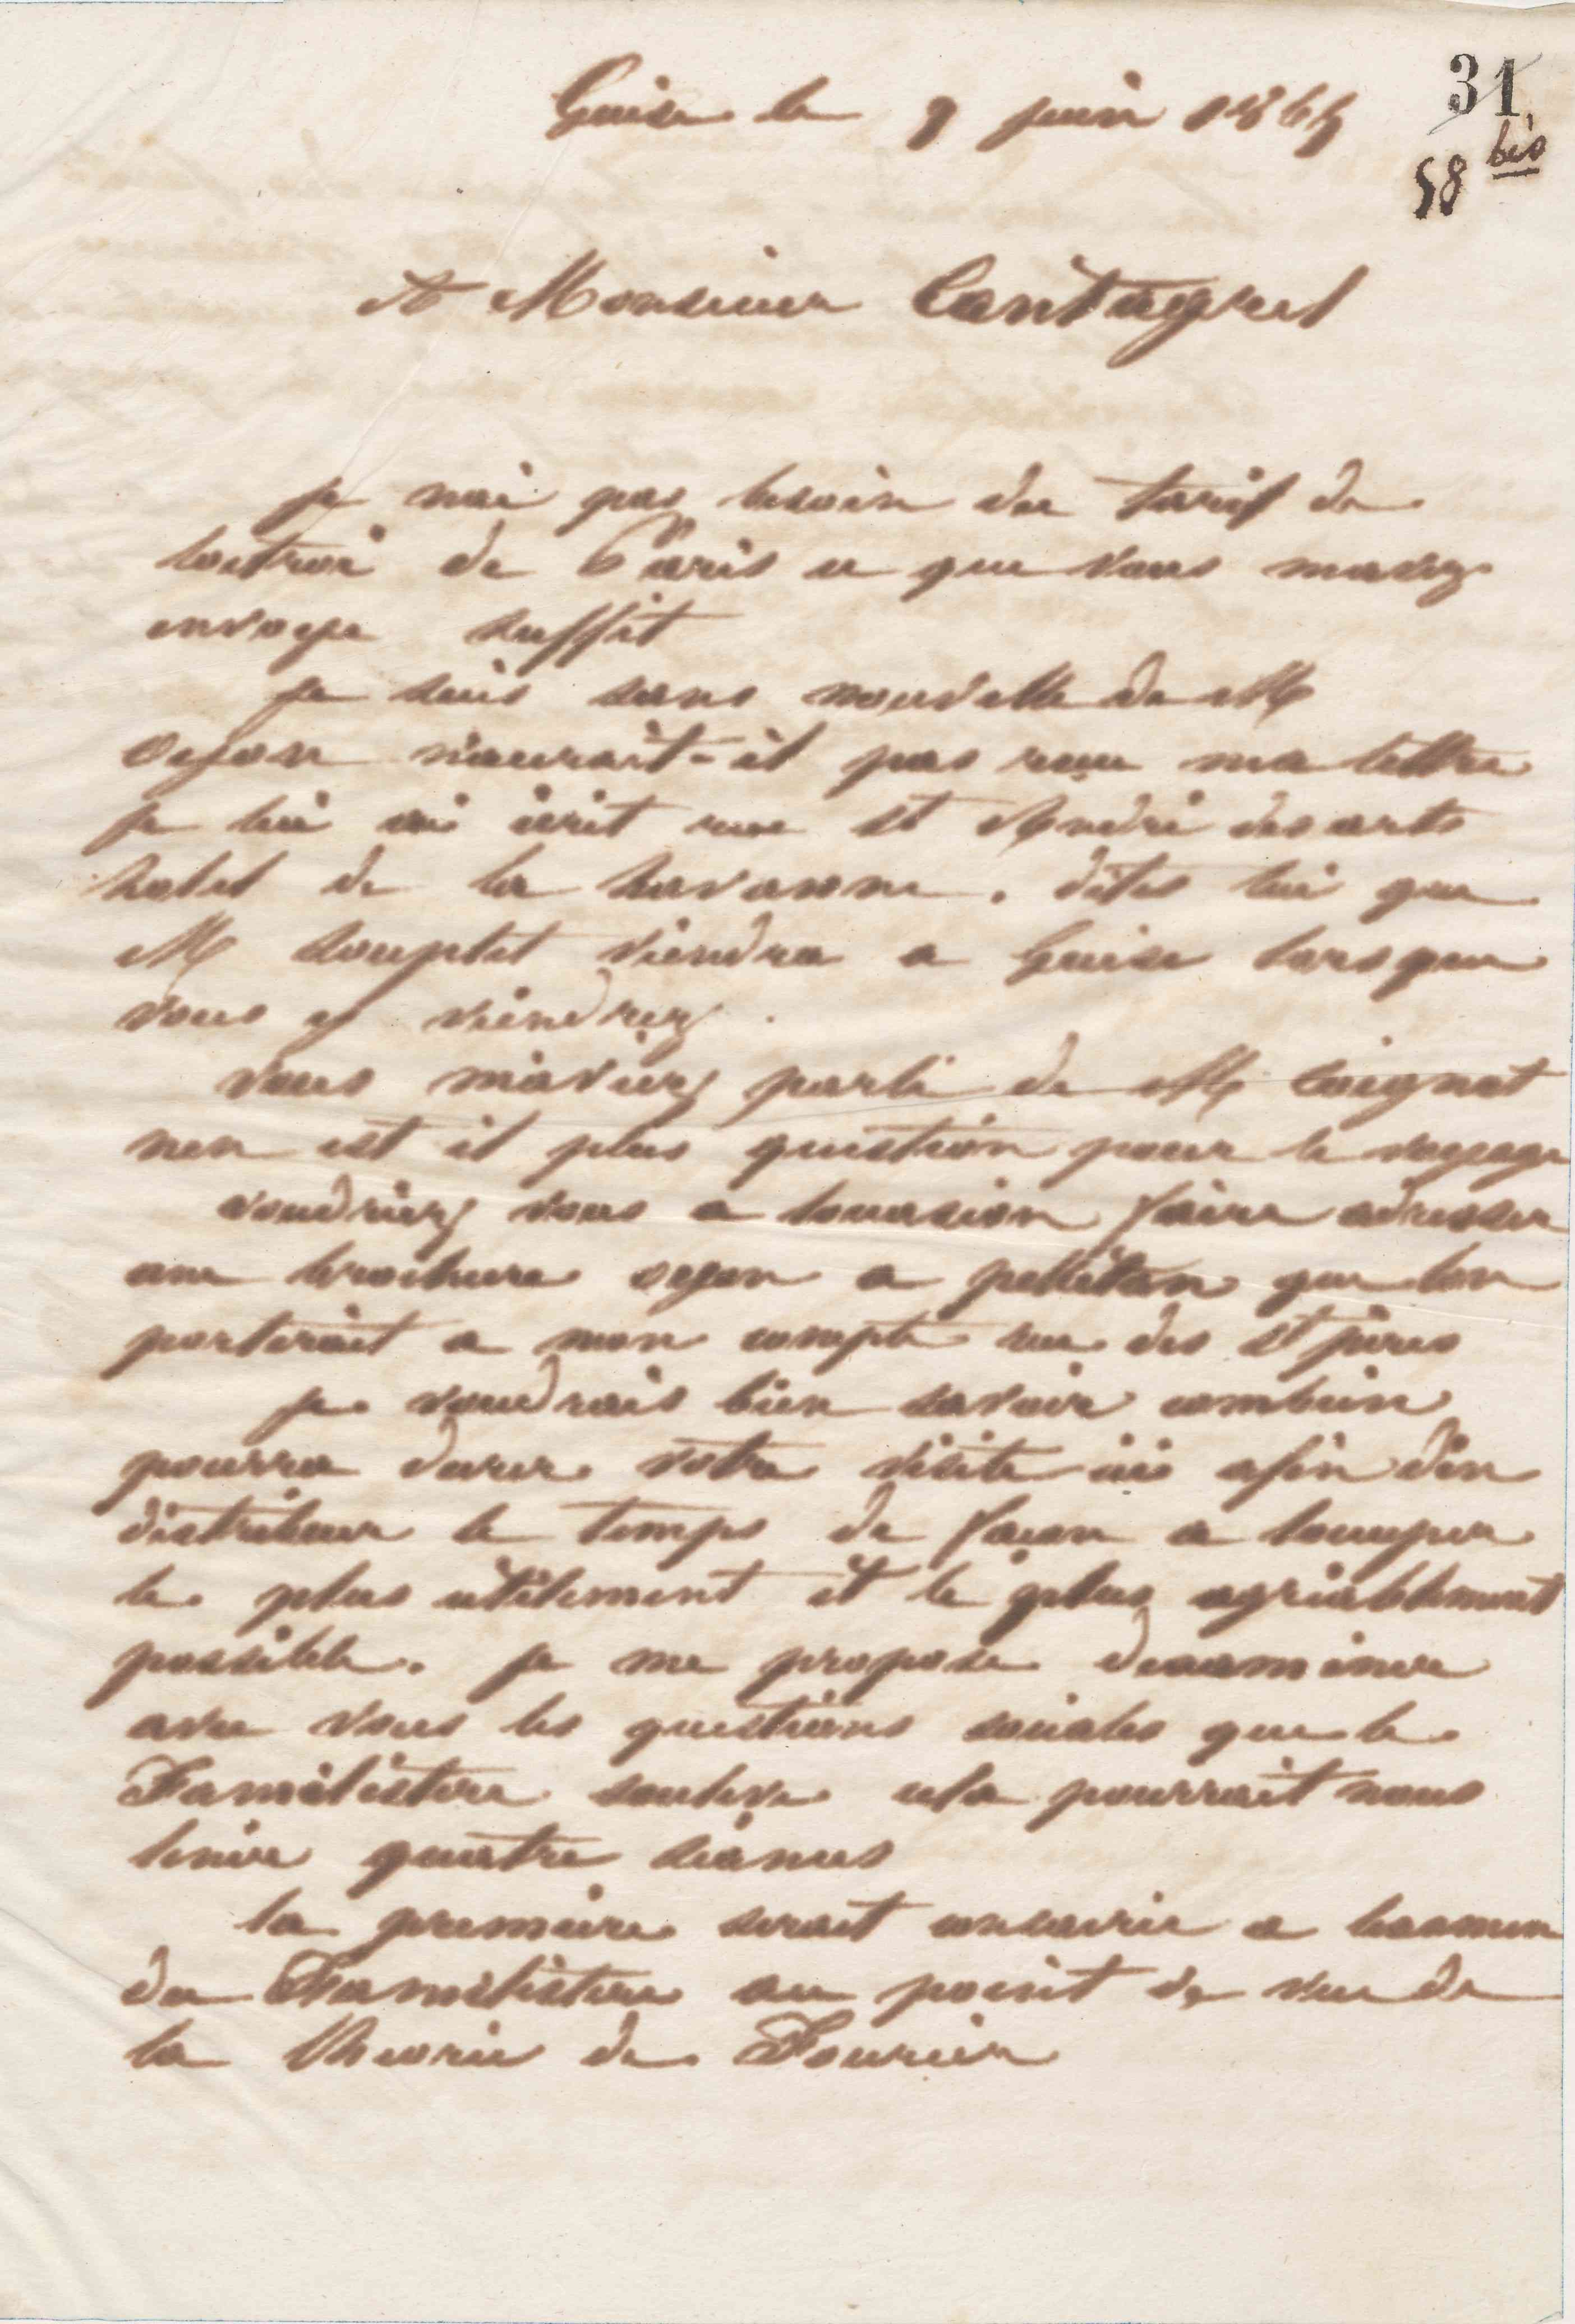 Guise le 9 juin 1865
31
58 bis
A Monsieur Cantagrel
je nai pas besoin du tarif de
loctroi de Paris ce que vous mavez
envoye suffit
je suis sans nouvelle de M
Oyon n'aurait-il pas recu ma lettre
je lui ai ecrit rue St André des arts
hotel de la havanne. dites lui que
M Souplet viendra a Guise lorsque
vous y viendrez.
vous m'aviez parlé de M Coignet
nen est il plus question pour le voyage
voudriez vous a loccasion faire adresser
une brochure oyon a pelletan que lon
porterait a mon compte rue des St pères
je voudrais bien savoir combien
pourra durer votre visite ici afin d'en
distribuer le temps de facon a loccuper
le plus utilement et le plus agréablement
possible. je me propose dexaminer
avec vous les questions sociales que le
Familistère souleve cela pourrait nous
tenir quatre séances
la première serait consacrée a lexamen
du Familistère au point de vue de
la theorie de Fourier